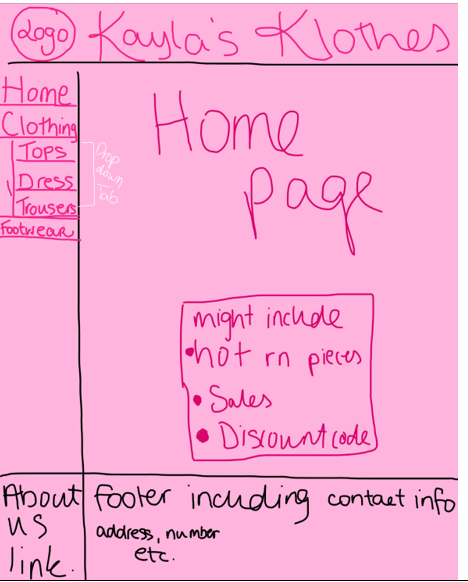 Logo Kayla's Klothes
Home
Clothing
Tops
Dress
Trousers
Footwear
Drop
down
Tab
Home
page
might include
• hot rn pieces
• Sales
• Discount code
About
us
link.
footer including contact info
address, number
etc.